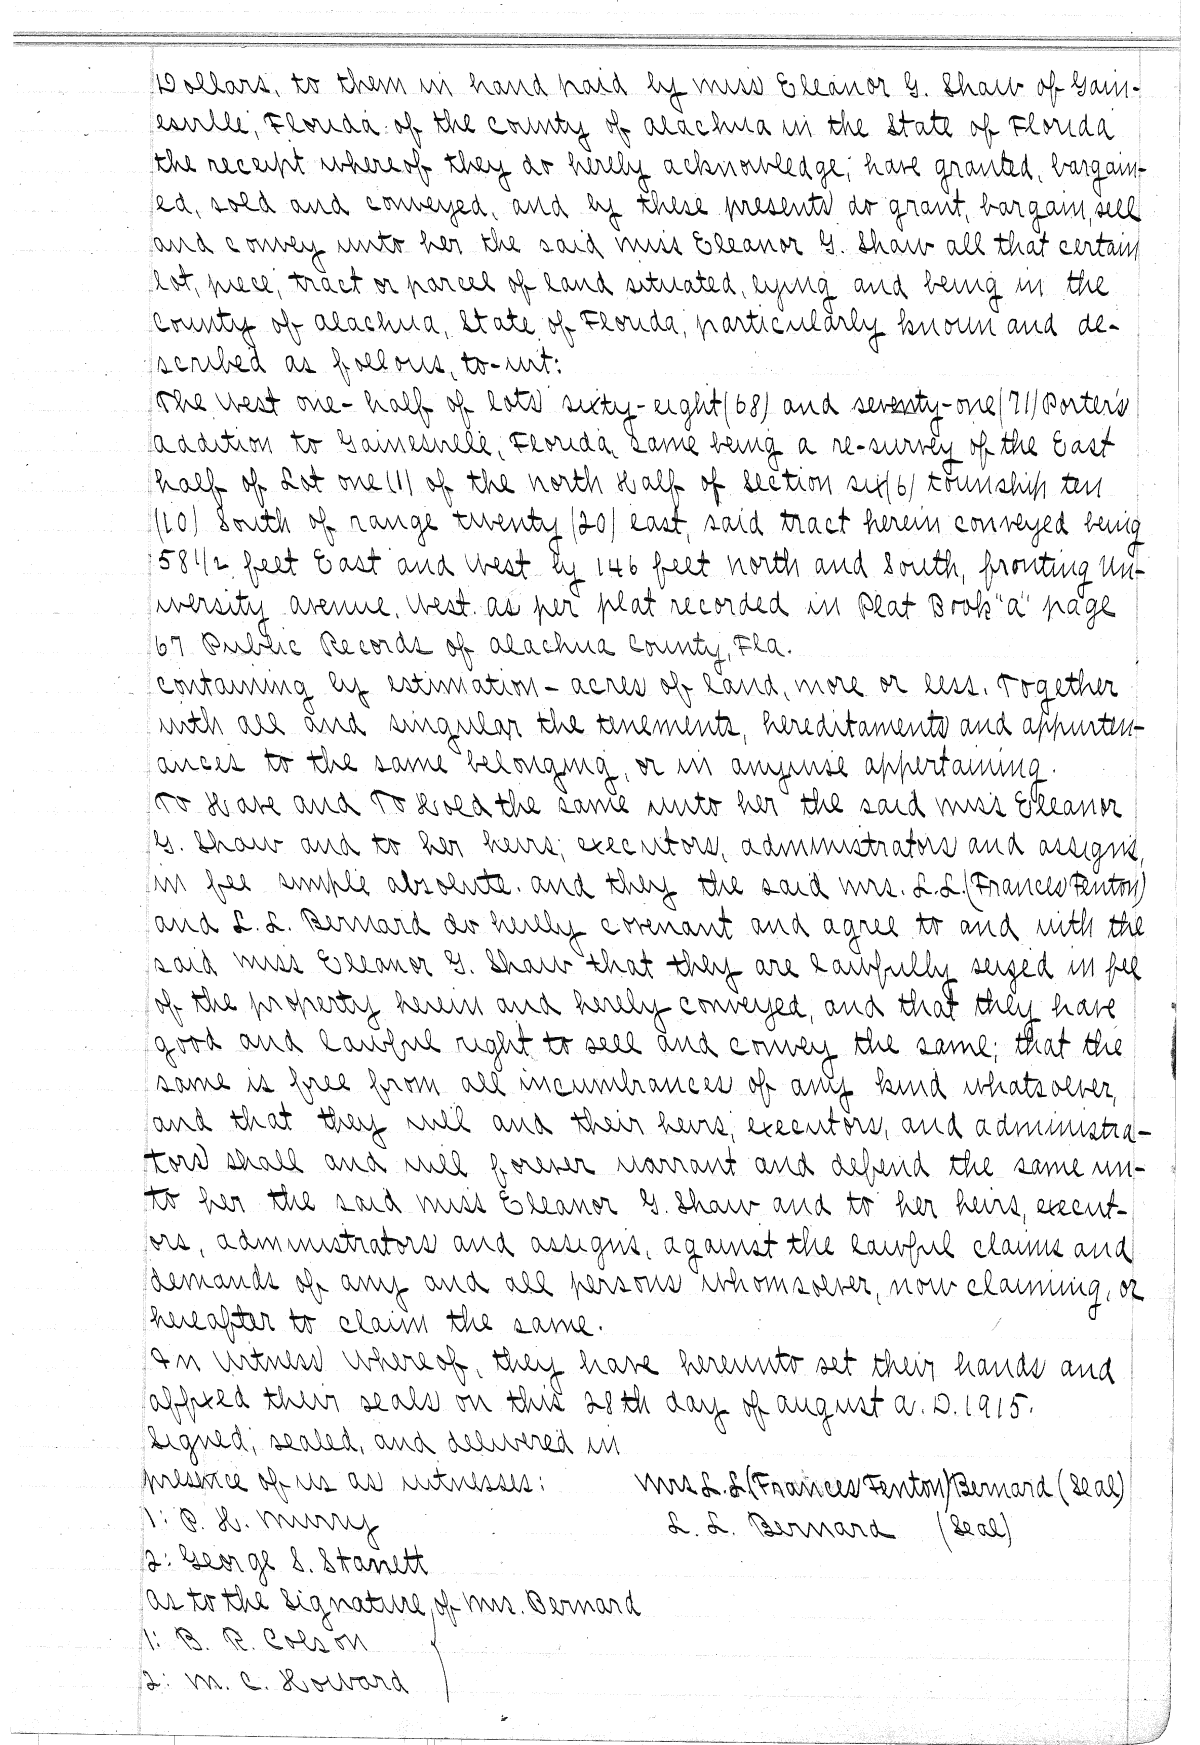 Dollars, to them in hand paid by miss Eleanor G. Shaw of Gain-
esville, Florida of the county of alachua in the State of Florida
the receipt whereof they do hereby acknowledge, have granted, bargain-
ed, sold and conveyed, and by these presents do grant, bargain, sell
and convey unto her the said miss Eleanor G. Shaw all that certain
lot, piece, tract or parcel of land situated, lying and being in the
county of alachua, State of Florida, particularly known and de-
scribed as follows, to-wit:
The West one-half of lots sixty-eight (68) and seventy-one (71) Porter's
addition to Gainesville, Florida, same being a re-survey of the East
half of Lot one (1) of the north Half of Section six (6) township ten
(10) South of range twenty (20) east, said tract herein conveyed being
58 1/2 feet East and West by 146 feet north and South, fronting Un-
iversity avenue, West as per plat recorded in Plat Book "a" page
67 Public Records of alachua County, Fla.
containing by estimation - acres of land, more or less. Together
with all and singular the tenements, hereditaments and appurten-
ances to the same belonging, or in anywise appertaining.
To Have and To Hold the same unto her the said miss Eleanor
G. Shaw and to her heirs, executors, administrators and assigns,
in fee simple absolute. and they the said mrs. L.L. (Frances Fenton)
and L. L. Bernard do hereby covenant and agree to and with the
said miss Eleanor G. Shaw that they are lawfully seized in fee
of the property herein and hereby conveyed, and that they have
good and lawful right to sell and convey the same; that the
same is free from all incumbrances of any kind whatsoever,
and that they will and their heirs, executors, and administra-
tors shall and will forever warrant and defend the same un-
to her the said miss Eleanor G. Shaw and to her heirs, execut-
ors, administrators and assigns, against the lawful claims and
demands of any and all persons whomsoever, now claiming, or
hereafter to claim the same.
In Witness Whereof, they have hereunto set their hands and
affixed their seals on this 28th day of august a. D. 1915.
Signed, sealed, and delivered in
presence of us as witnesses: Mrs L. L (Frances Fenton) Bernard (Seal)
1: P. H. Murry L. L. Bernard (Seal)
2: George S.
as to the Signature of Mrs. Bernard
1: B. R. Colson
2: M. C. Howard